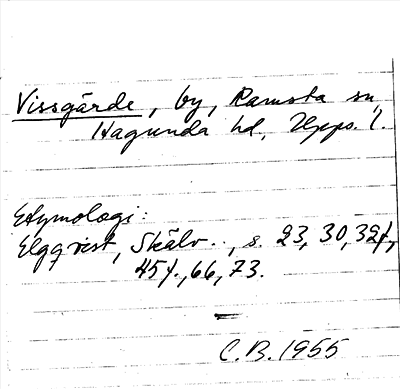 Vissgärde, by, Ramsta sn,
Hagunda hd, Upps. l.
Etymologi:
Elgqvist, Skälv.., s. 23, 30, 32f,
45f., 66, 73.
C. B. 1955